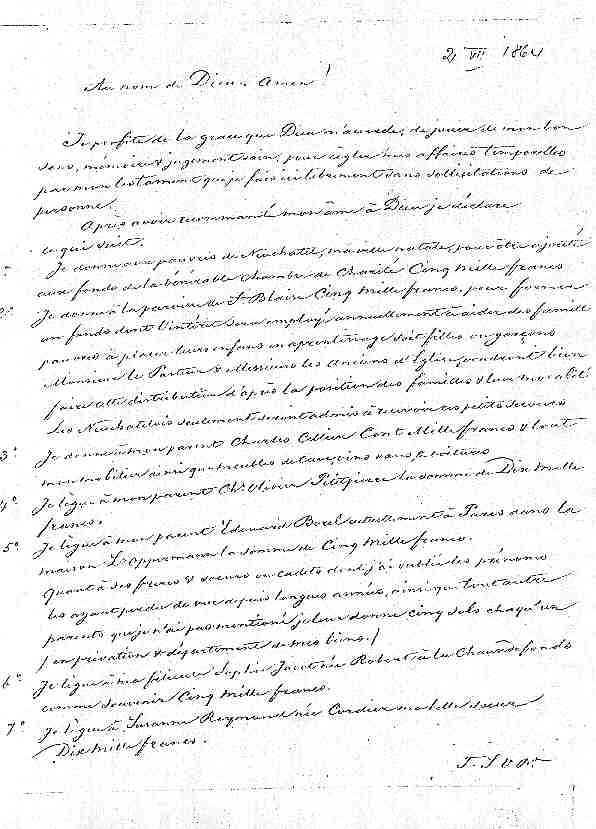 2 VII 1864
Au nom de Dieu. Amen!
Je profite de la grace que Dieu m'accorde, de jouir de mon bon
sens, mémoire & jugement sain, pour régler mes affaires temporelles
par mon testament que je fais ici librement sans sollicitations de
personne.
Après avoir recommandé mon âme à Dieu je déclare
ce qui suit.
Je donne aux pauvres de Neuchatel, ma ville natale, pour être ajouté
aux fonds de la vénérable Chambre de Charité Cinq Mille francs
2° Je donne à la paroisse de St Blaise Cinq Mille francs, pour former
un fonds dont l'intérêt sera employé annuellement à aider des famille
pauvres à placer leurs enfans en aprentissage soit filles ou garçons
Monsieur le Pasteur & Messieurs les Anciens d'Eglise voudront bien
faire cette distribution d'après la position des familles & leur moralité
Les Neuchatelois seulement seront admis à recevoir ces petits secours
3° Je donne à mon parent Charles Cellier Cent Mille francs & tout
mon mobilier ainsi que meubles de cave, vins, & voitures
4° Je lègue à mon parent Ch. Olivier Petitpierre la somme de Dix Mille
francs.
5° Je lègue à mon parent Edouard Borel actuellement à Paris dans la
maison Oppermann la somme de Cinq Mille francs.
Quant à ses freres & soeurs ou cadets dont j'ai oublié les prénoms
les ayant perdu de vue depuis longues années, ainsi que tout autre
parents que je n'ai pas mentioné je leur donne cinq sols chaqu'un
(en privation & département de mes biens.)
6° Je lègue à ma filleule Sophie Jacottée Robert à la Chaux de fonds
comme souvenir Cinq Mille francs.
7° Je lègue à Susanne Reymond née Cordier ma belle soeur
Dix Mille francs.